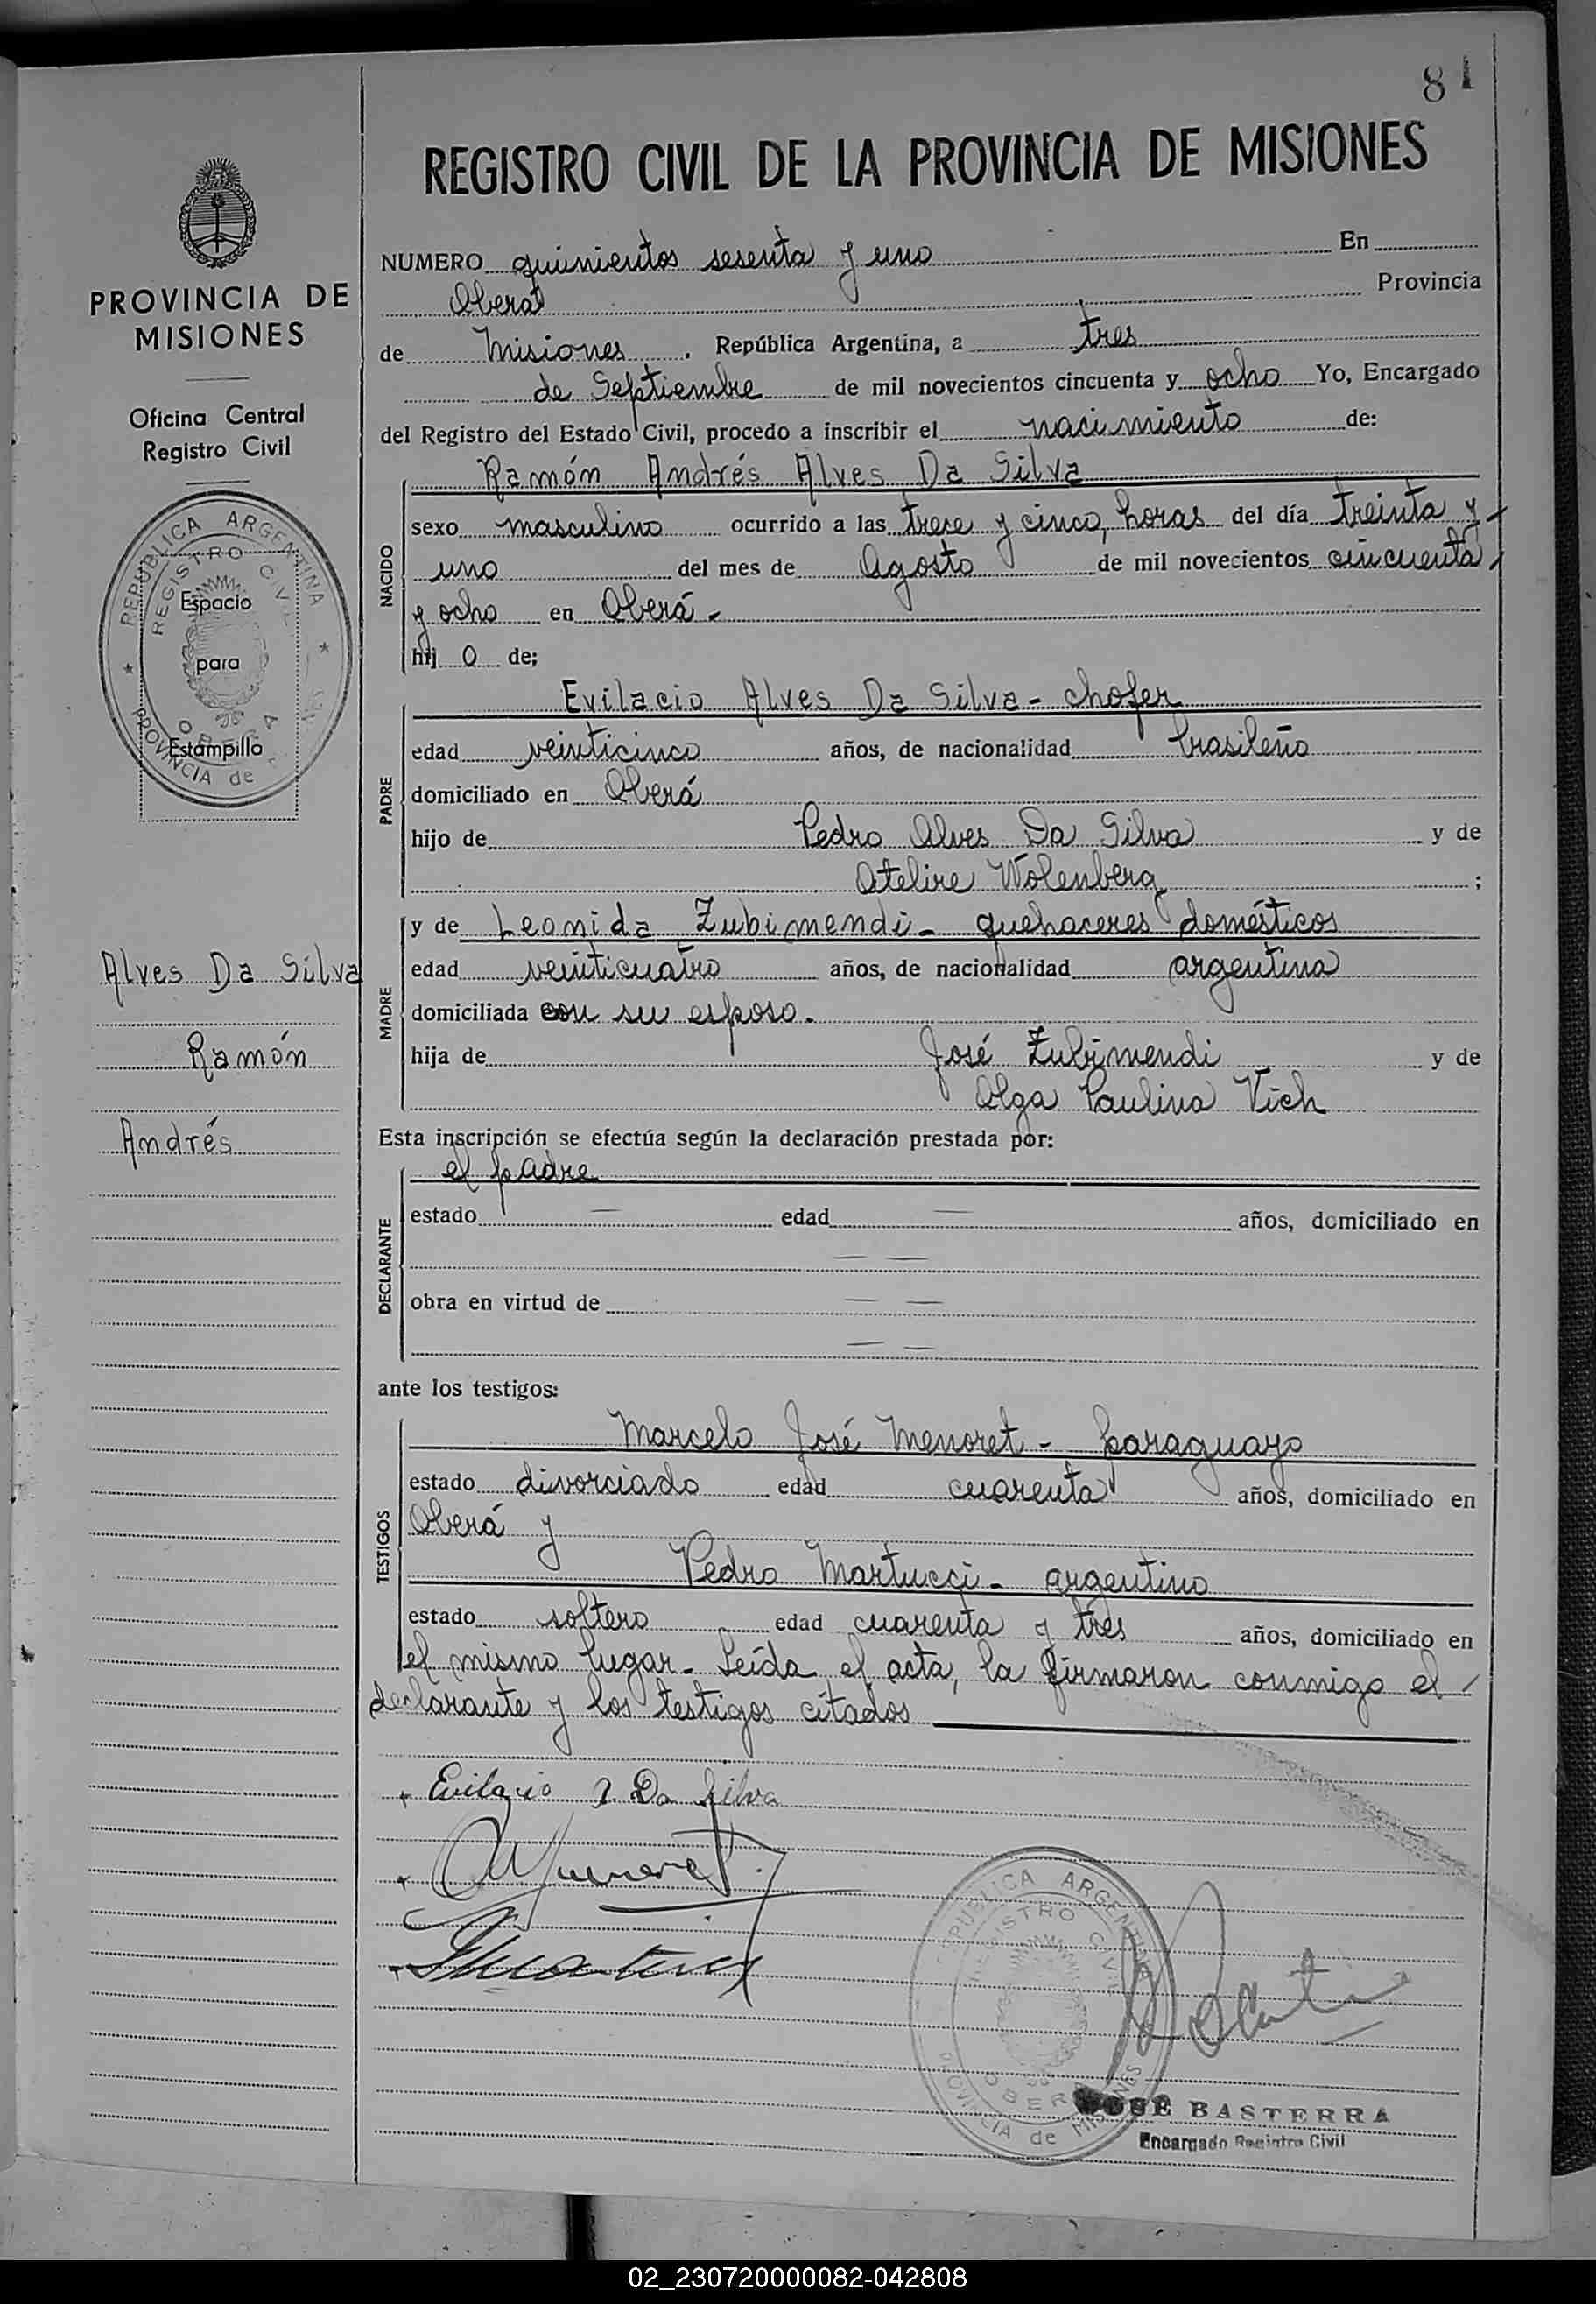 81
REGISTRO CIVIL DE LA PROVINCIA DE MISIONES
PROVINCIA DE
MISIONES
Oficina Central
Registro Civil
REPUBLICA ARGENTINA
REGISTRO CIVIL
Espacio
para
Estampillo
OBERA
PROVINCIA de
Alves Da Silva
Ramón
Andrés
NUMERO quinientos sesenta y uno En
Oberá Provincia
de Misiones . República Argentina, a tres
de Septiembre de mil novecientos cincuenta y ocho Yo, Encargado
del Registro del Estado Civil, procedo a inscribir el nacimiento de:
NACIDO
Ramón Andrés Alves Da Silva
sexo masculino ocurrido a las trece y cinco, horas del día treinta y
uno del mes de Agosto de mil novecientos cincuenta
y ocho en Oberá.-
hij o de;
PADRE
Evilacio Alves Da Silva - chofer
edad veinticinco años, de nacionalidad brasileño
domiciliado en Oberá
hijo de Pedro Alves Da Silva y de
Atelire Wolenberg ;
MADRE
y de Leonida Zubimendi - quehaceres domésticos
edad veinticuatro años, de nacionalidad argentina
domiciliada con su esposo.
hija de José Zubimendi y de
Olga Paulina Vich
Esta inscripción se efectúa según la declaración prestada por:
DECLARANTE
el padre
estado — edad — años, domiciliado en
— —
obra en virtud de — —
— —
ante los testigos:
TESTIGOS
Marcelo José Menoret - paraguayo
estado divorciado edad cuarenta años, domiciliado en
Oberá y
Pedro Martucci - argentino
estado soltero edad cuarenta y tres años, domiciliado en
el mismo lugar.- Leída el acta, la firmaron conmigo el
declarante y los testigos citados
Evilacio Da Silva
REPUBLICA ARGENTINA
REGISTRO CIVIL
OBERA
PROVINCIA de MISIONES
JOSÉ BASTERRA
Encargado Registro Civil
02_230720000082-042808